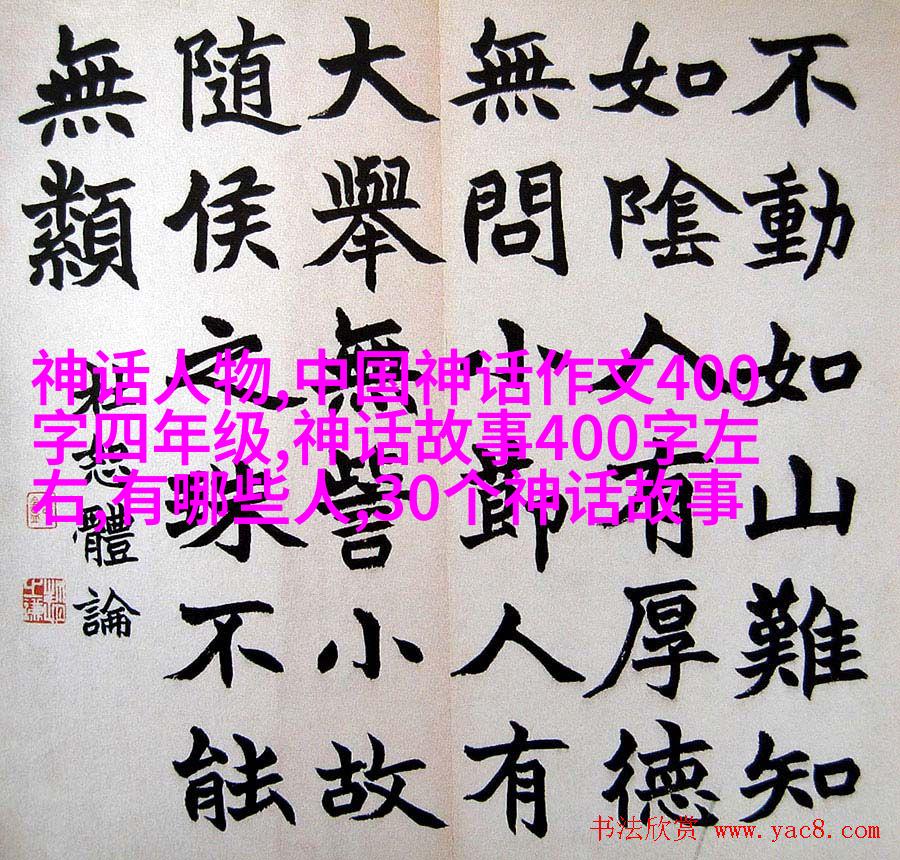 不動如山難知
如陰人有厚德
無問小節人有
大舉無訾小故
隨侯之珠不能
無纇
杜恕體論
神话人物,中国神话作文400
字四年级,神话故事400字左
右,有哪些人,30个神话故事
书法欣赏 www.yac8.com